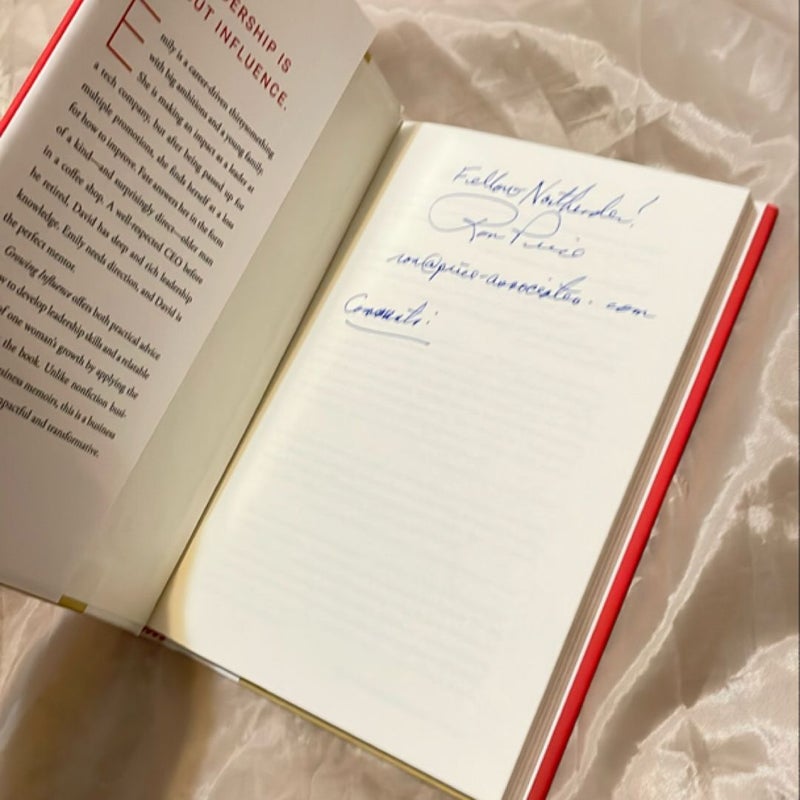 DERSHIP IS
OUT INFLUENCE.
Emily is a career-driven thirtysomething
with big ambitions and a young family.
She is making an impact as a leader at
a tech company, but after being passed up for
multiple promotions, she finds herself at a loss
for how to improve. Fate answers her in the form
of a kind—and surprisingly direct—older man
in a coffee shop. A well-respected CEO before
he retired, David has deep and rich leadership
knowledge. Emily needs direction, and David is
the perfect mentor.
Growing Influence offers both practical advice
w to develop leadership skills and a relatable
of one woman's growth by applying the
the book. Unlike nonfiction busi-
siness memoirs, this is a business
mpactful and transformative.
Fellow Northender!
Ron Price
ron@price-associates.com
Comments: